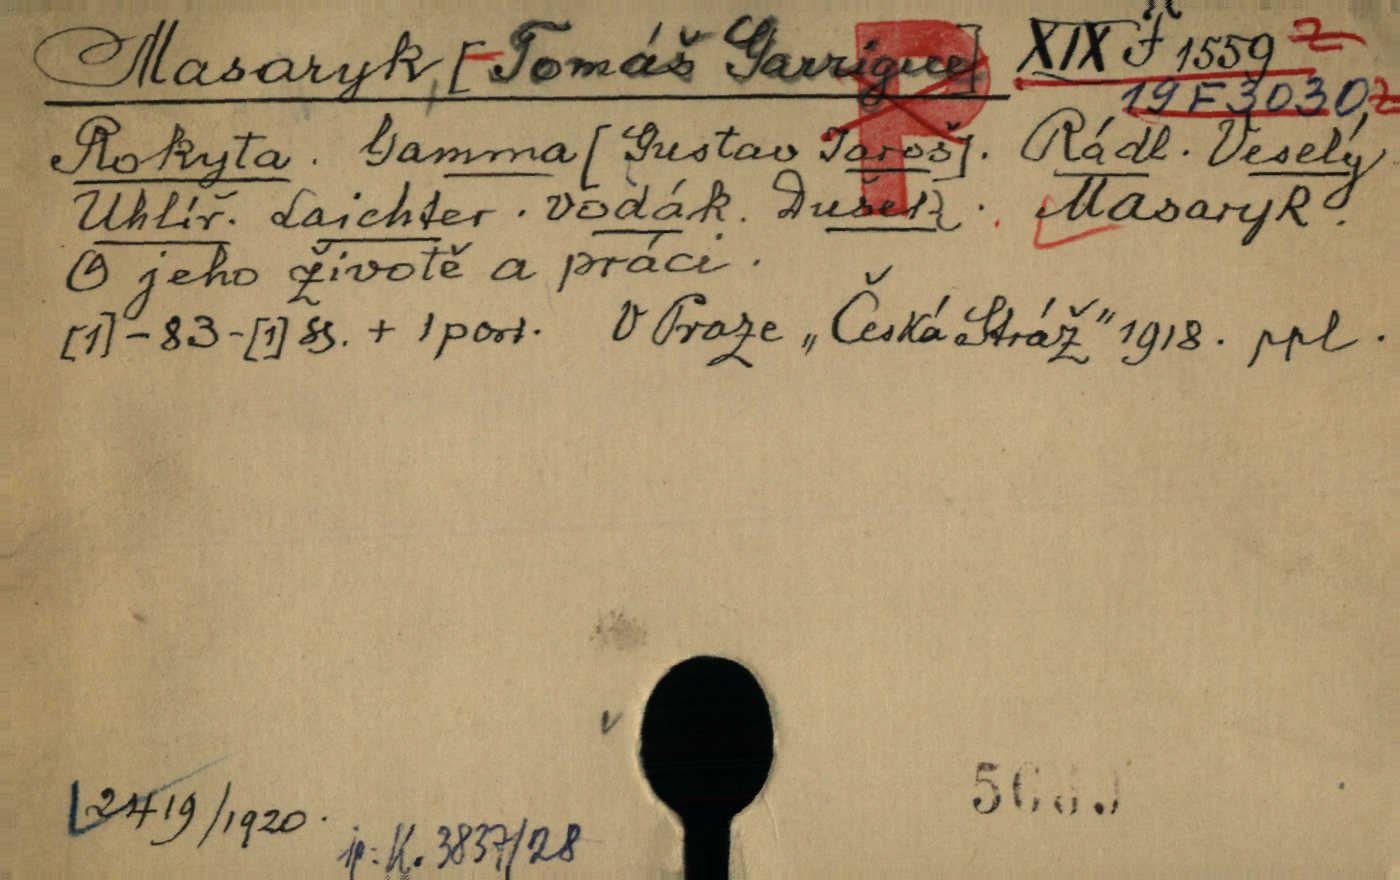 Masaryk, [Tomáš Garrigue] XIX F 1559
19 F 3030
Rokyta. Gamma [Gustav Jaroš]. Rádl. Veselý
Uhlíř. Laichter. Vodák. Dušek. Masaryk.
O jeho životě a práci.
[1]-83-[1] ss. + 1 port. V Praze „Česká Stráž" 1918. ppl.
2419/1920.
ip: K. 3837/28